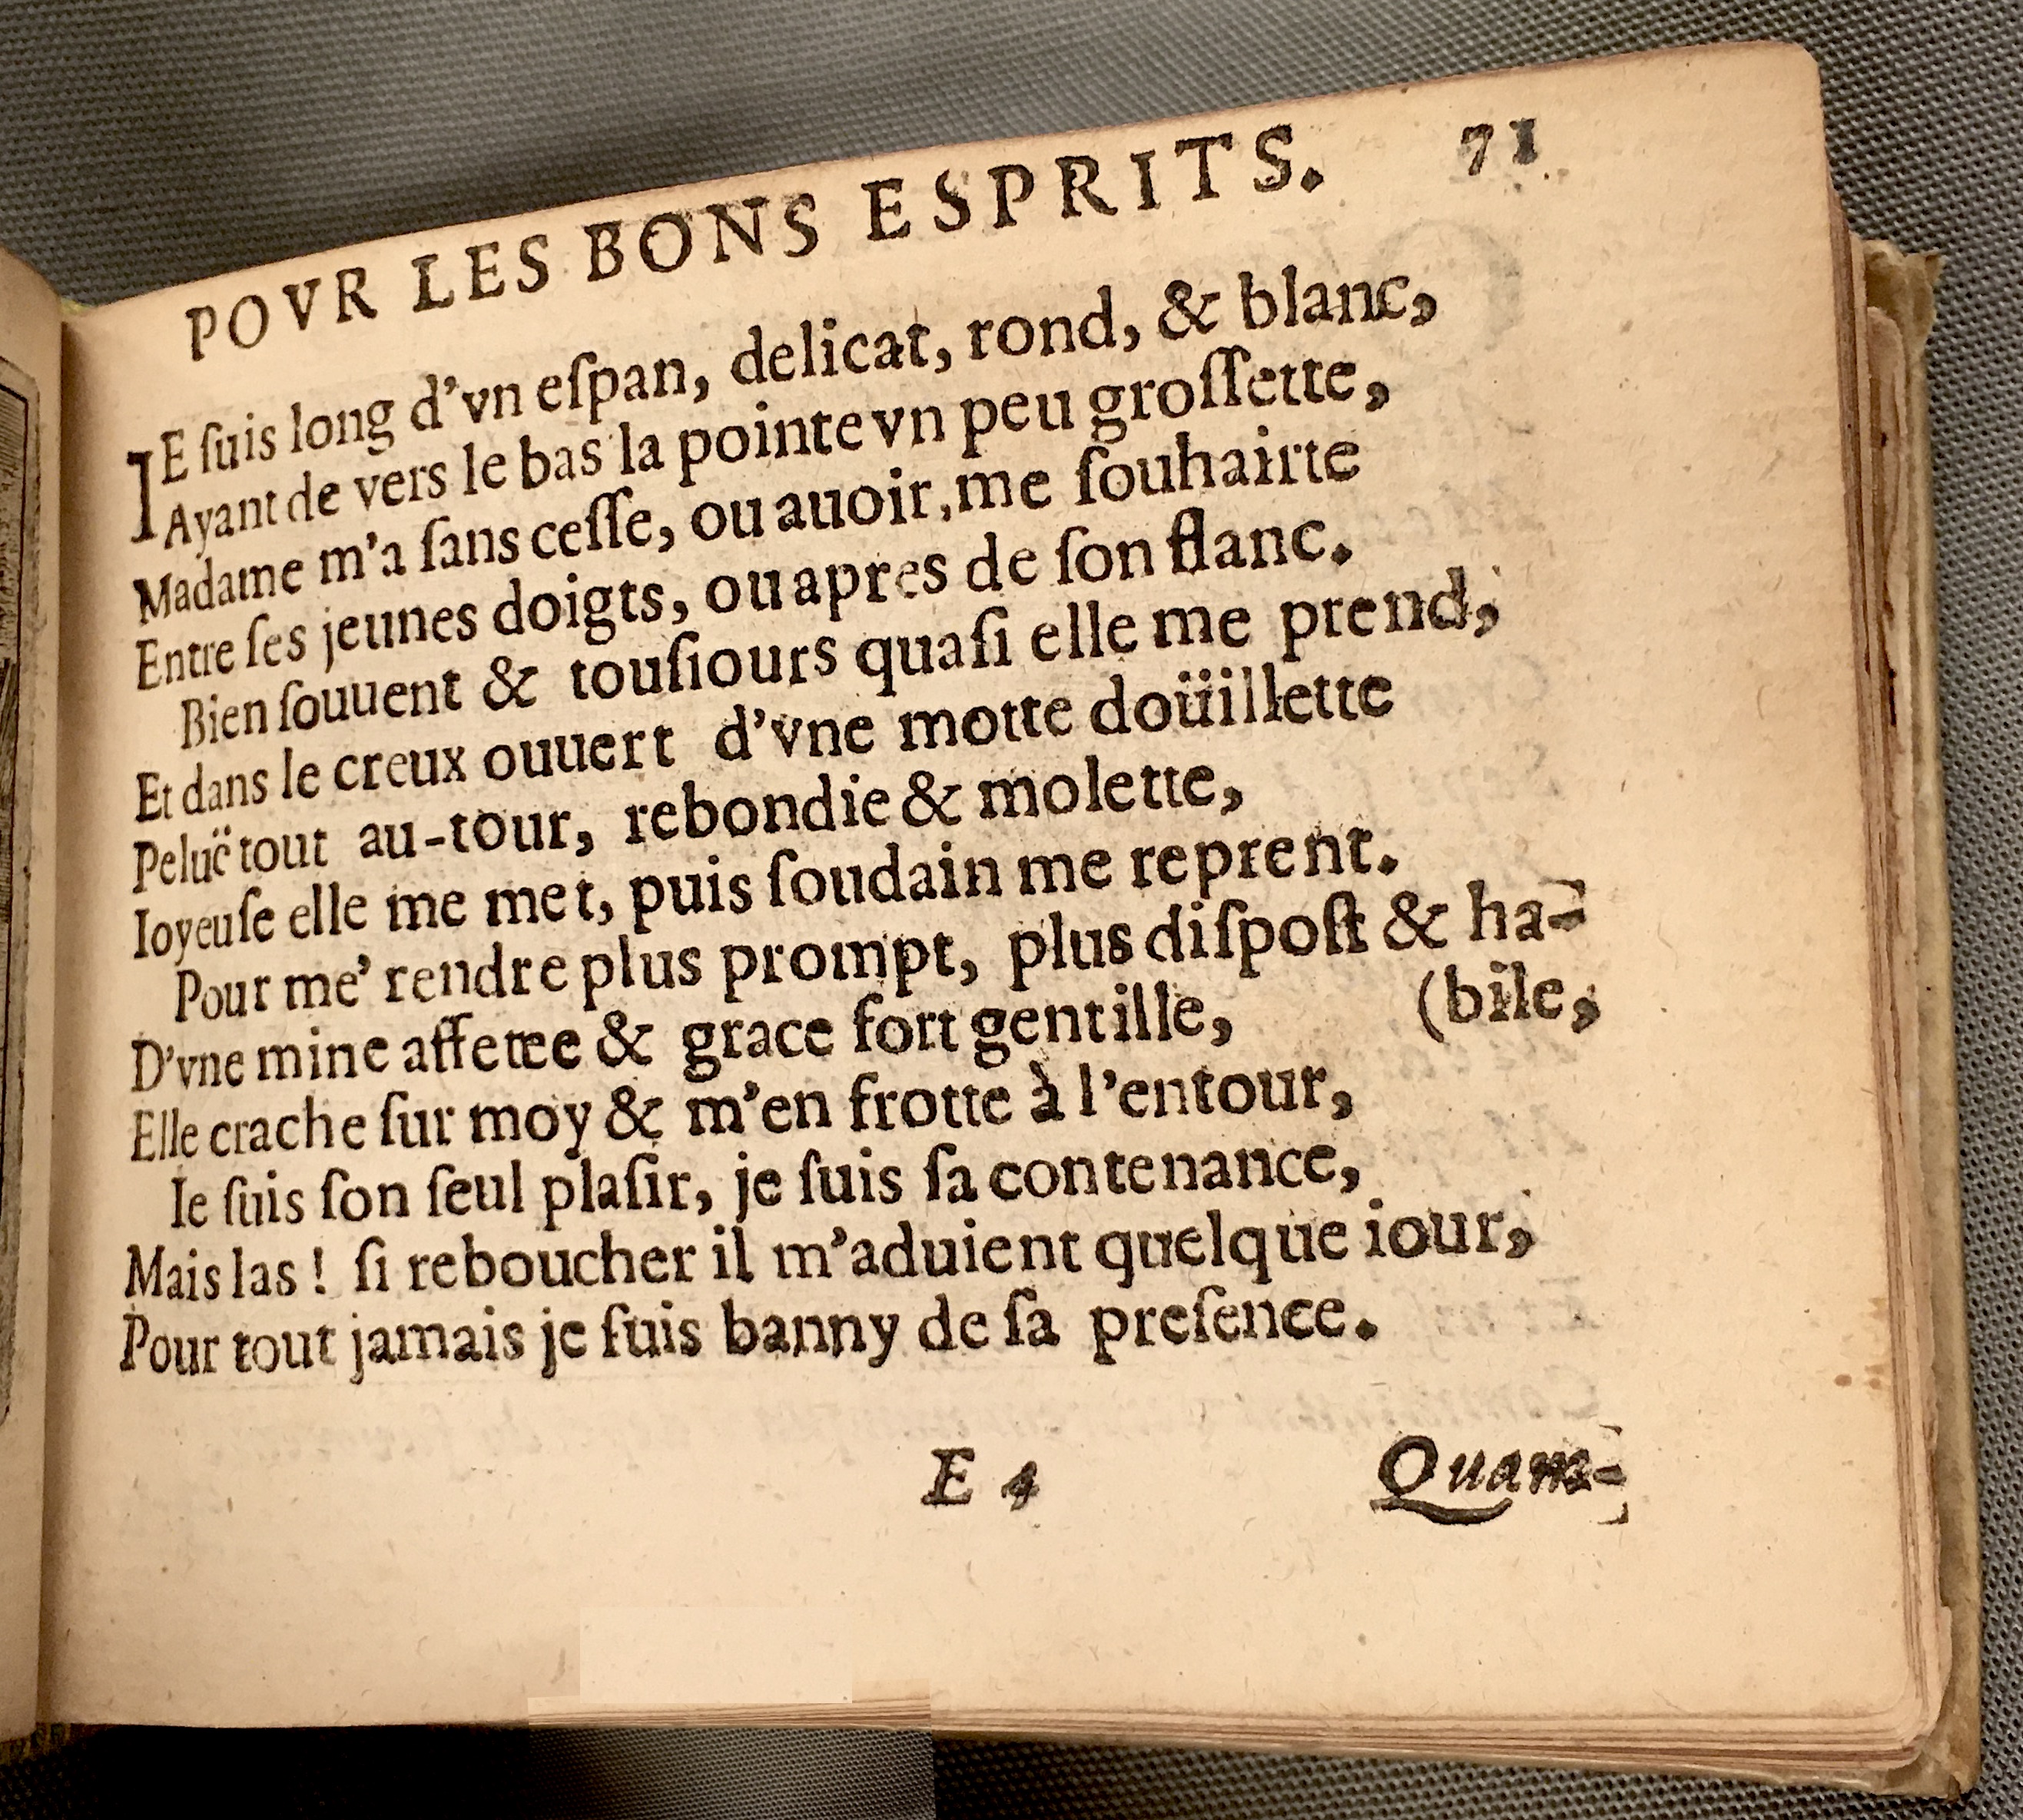 POVR LES BONS ESPRITS. 71
IE ſuis long d'vn eſpan, delicat, rond, & blanc,
Ayant de vers le bas la pointe vn peu groſſette,
Madame m'a ſans ceſſe, ou auoir, me ſouhaitte
Entre ſes jeunes doigts, ou apres de ſon flanc.
Bien ſouuent & touſiours quaſi elle me prend,
Et dans le creux ouuert d'vne motte doüillette
Peluë tout au-tour, rebondie & molette,
Ioyeuſe elle me met, puis ſoudain me reprent.
Pour me' rendre plus prompt, plus diſpoſt & ha-
(bile,
D'vne mine affetee & grace fort gentille,
Elle crache ſur moy & m'en frotte à l'entour,
Ie ſuis ſon ſeul plaſir, je ſuis ſa contenance,
Mais las ! ſi reboucher il m'aduient quelque iour,
Pour tout jamais je ſuis banny de ſa preſence.
E 4 Quam-